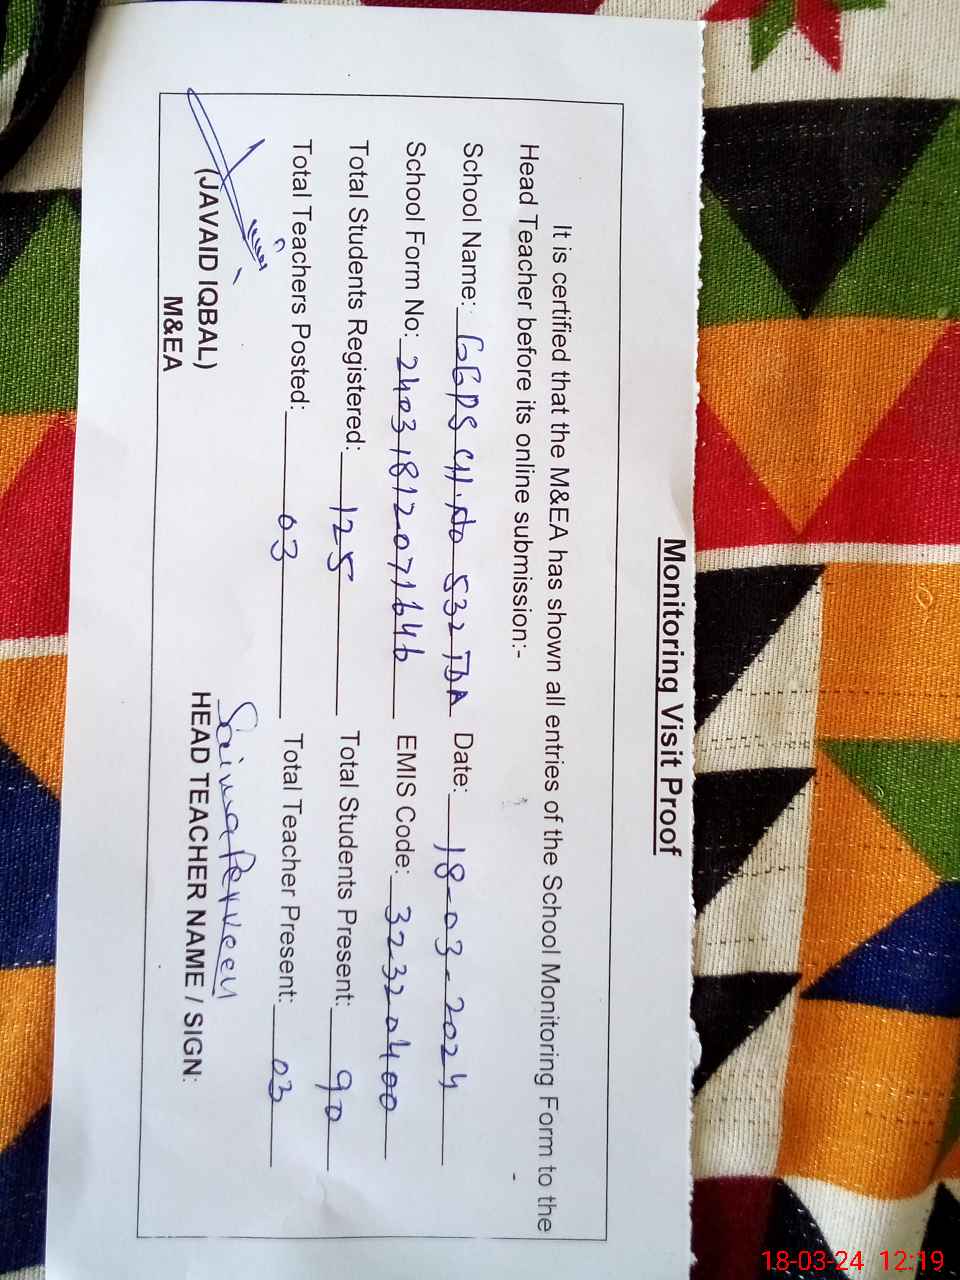 Monitoring Visit Proof
It is certified that the M&EA has shown all entries of the School Monitoring Form to the
Head Teacher before its online submission:-
School Name: GGPS CH.NO 532 TDA Date: 18-03-2024
School Form No: 24031812071646 EMIS Code: 32320400
Total Students Registered: 125 Total Students Present: 90
Total Teachers Posted: 03 Total Teacher Present: 03
Saima Perveen
(JAVAID IQBAL) HEAD TEACHER NAME / SIGN:
M&EA
18-03-24 12:19